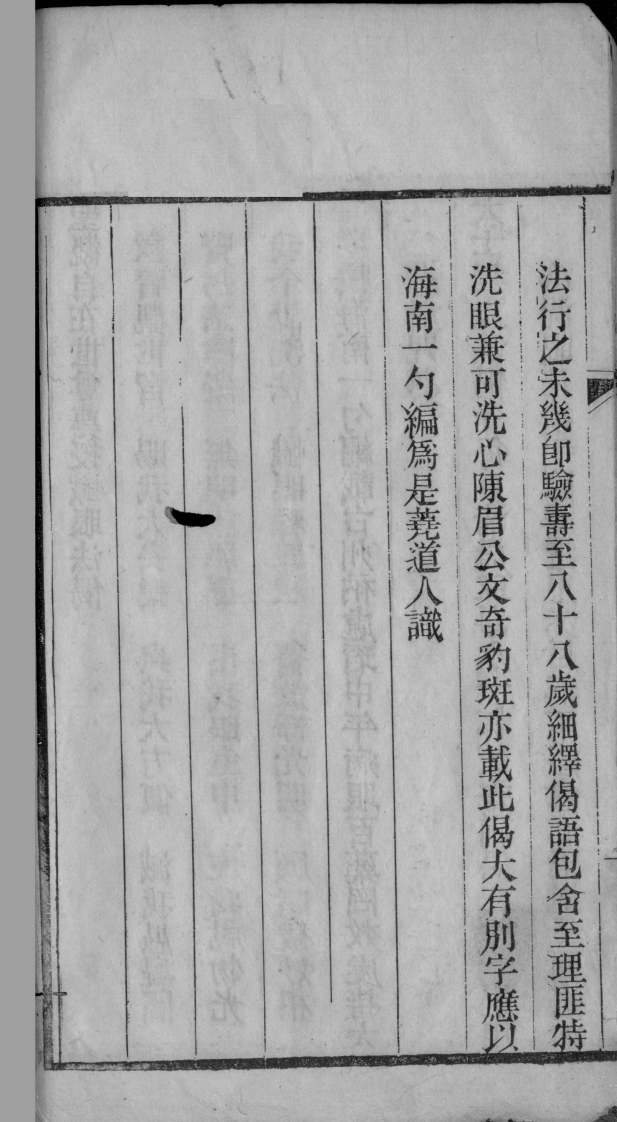 法行之未幾卽驗壽至八十八歲細繹偈語包含至理匪特
洗眼兼可洗心陳眉公文奇豹斑亦載此偈大有別字應以
海南一勺編爲是蕘道人識